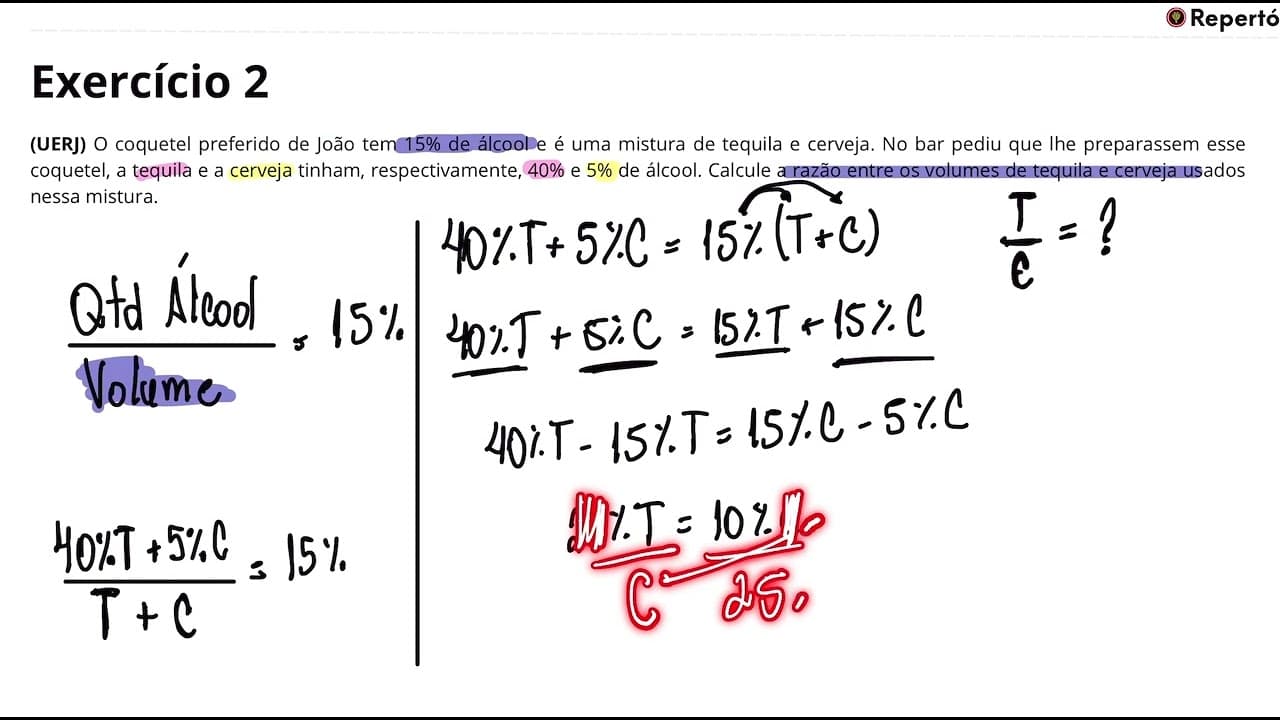 Repertó
Exercício 2
(UERJ) O coquetel preferido de João tem 15% de álcool e é uma mistura de tequila e cerveja. No bar pediu que lhe preparassem esse
coquetel, a tequila e a cerveja tinham, respectivamente, 40% e 5% de álcool. Calcule a razão entre os volumes de tequila e cerveja usados
nessa mistura.
Qtd Álcool
Volume
= 15%
40%T + 5%C
T + C
= 15%
40%T + 5%C = 15% (T + C)
40%T + 5%C = 15%T + 15%C
40%T - 15%T = 15%C - 5%C
%T = 10%
C 25
T
C
= ?